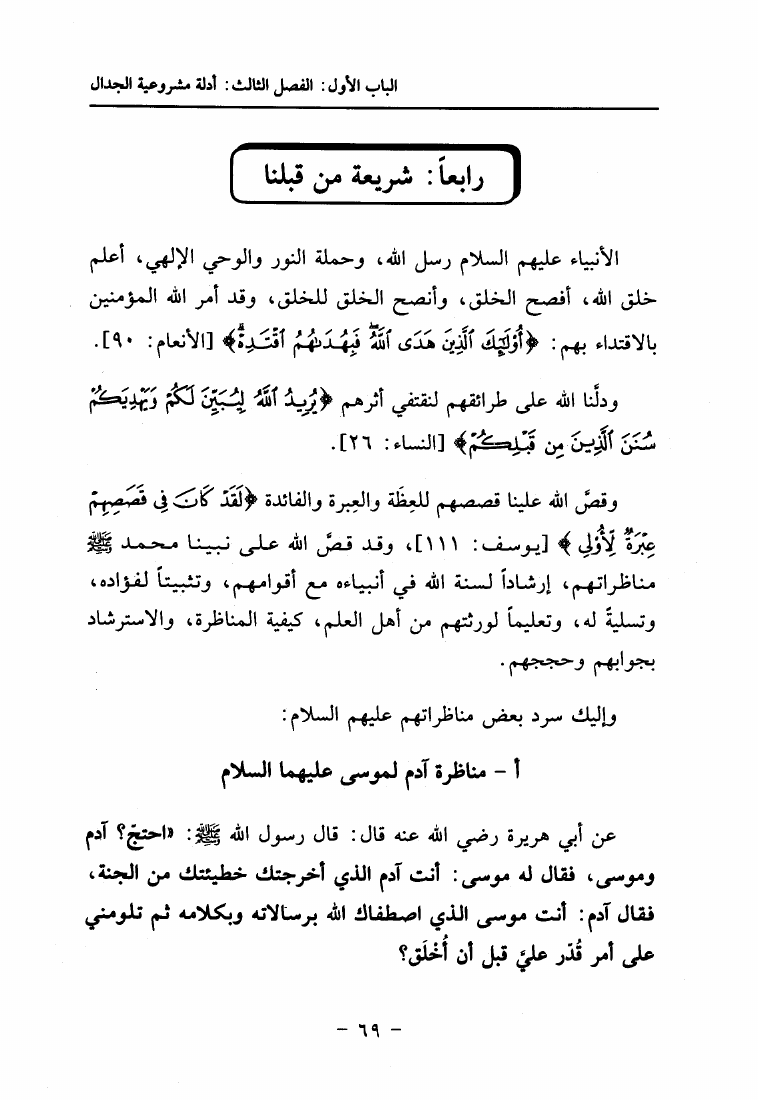 الباب الأول: الفصل الثالث: أدلة مشروعية الجدال
رابعاً: شريعة من قبلنا
الأنبياء عليهم السلام رسل الله، وحملة النور والوحي الإلهي، أعلم
خلق الله، أفصح الخلق، وأنصح الخلق للخلق، وقد أمر الله المؤمنين
بالاقتداء بهم: ﴿أُوْلَٰٓئِكَ ٱلَّذِينَ هَدَى ٱللَّهُۖ فَبِهُدَىٰهُمُ ٱقْتَدِهْۗ﴾ [الأنعام: ٩٠].
ودلَّنا الله على طرائقهم لنقتفي أثرهم ﴿يُرِيدُ ٱللَّهُ لِيُبَيِّنَ لَكُمْ وَيَهْدِيَكُمْ
سُنَنَ ٱلَّذِينَ مِن قَبْلِكُمْ﴾ [النساء: ٢٦].
وقصَّ الله علينا قصصهم للعِظَة والعِبرة والفائدة ﴿لَقَدْ كَانَ فِى قَصَصِهِمْ
عِبْرَةٌ لِّأُوْلِى﴾ [يوسف: ١١١]، وقد قصَّ الله على نبينا محمد ﷺ
مناظراتهم، إرشاداً لسنة الله في أنبياءه مع أقوامهم، وتثبيتاً لفؤاده،
وتسليةً له، وتعليماً لورثتهم من أهل العلم، كيفية المناظرة، والاسترشاد
بجوابهم وحججهم.
وإليك سرد بعض مناظراتهم عليهم السلام:
أ - مناظرة آدم لموسى عليهما السلام
عن أبي هريرة رضي الله عنه قال: قال رسول الله ﷺ: «احتجّ؟ آدم
وموسى، فقال له موسى: أنت آدم الذي أخرجتك خطيئتك من الجنة،
فقال آدم: أنت موسى الذي اصطفاك الله برسالاته وبكلامه ثم تلومني
على أمر قُدّر عليَّ قبل أن أُخْلَق؟
- ٦٩ -